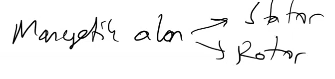 Manyetik alan
Stator
Rotor